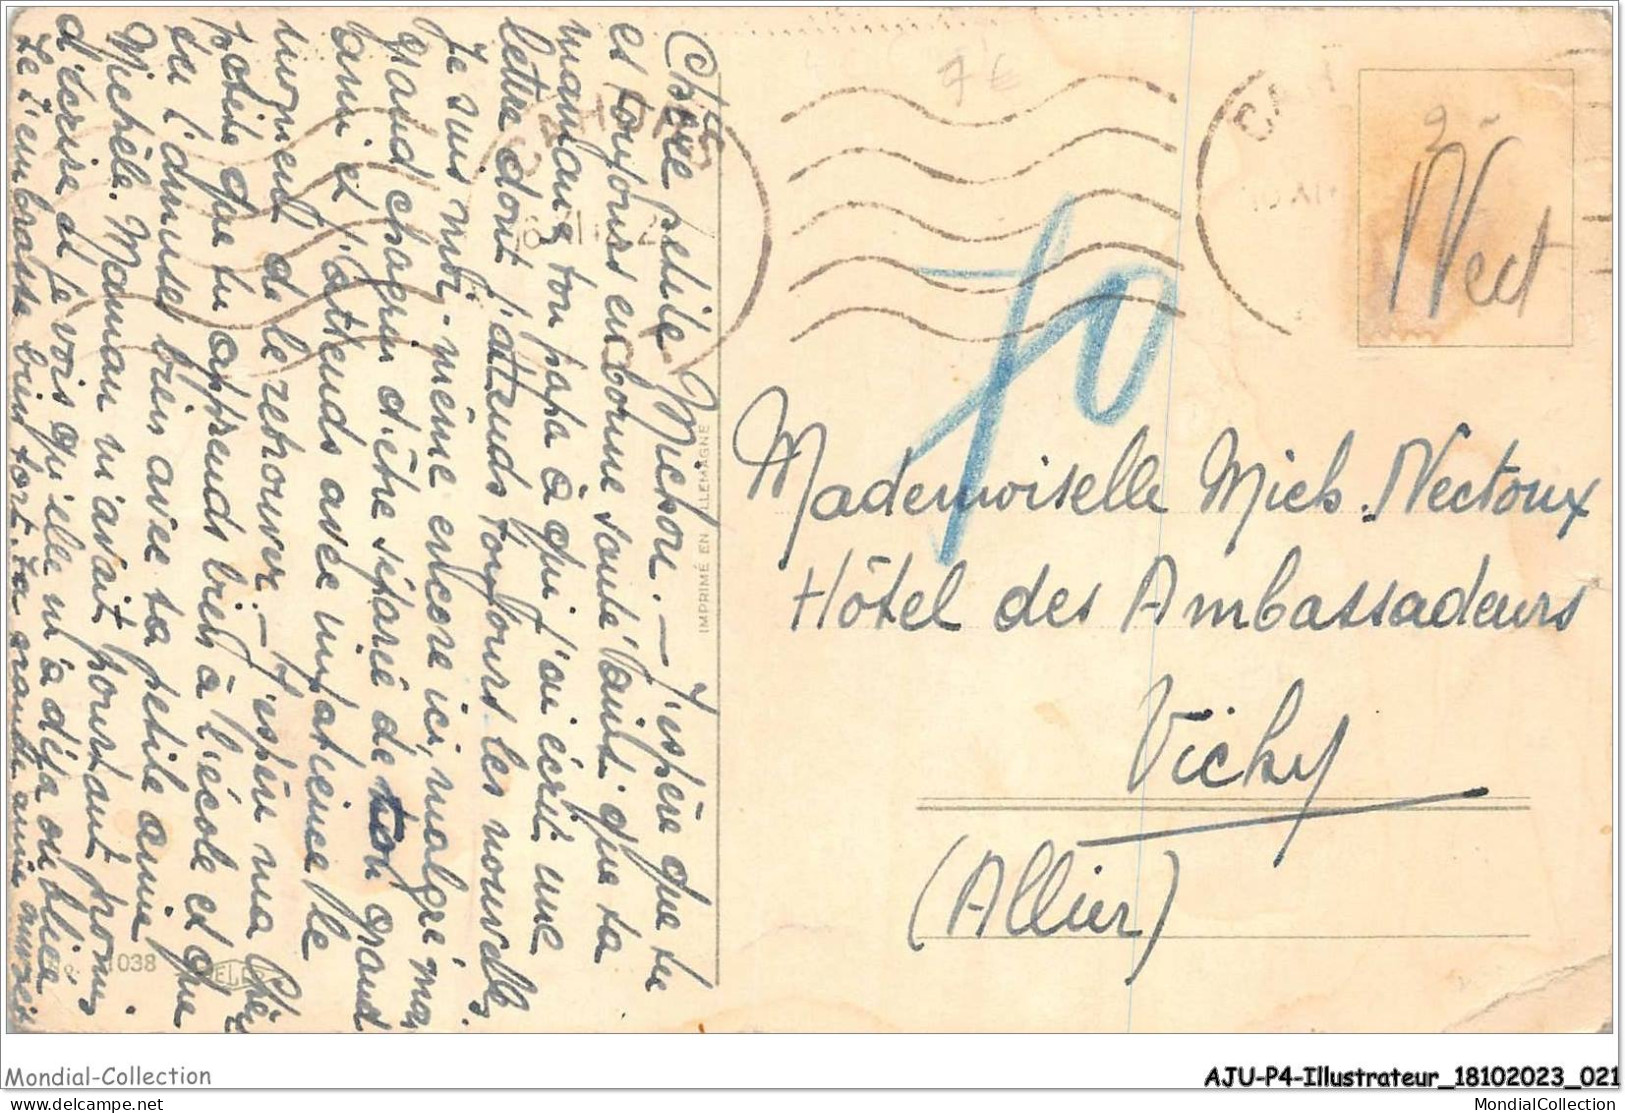 Chère petite Michou. — J'espère que tu
es toujours en bonne santé, ainsi que ta
maman & ton papa à qui j'ai écrit une
lettre dont j'attends toujours les nouvelles.
Je suis moi-même encore ici, malgré mon
grand chagrin d'être séparée de ton grand
ami et j'attends avec impatience le
moment de le retrouver. — J'espère ma
petite que tu apprends bien à l'école et que
tu t'amuses bien avec ta petite amie
Michèle. Maman m'avait pourtant promis
d'écrire et je vois qu'elle m'a déjà oubliée
Je t'embrasse bien fort. Ta grande amie
IMPRIMÉ EN ALLEMAGNE
1038
10
2-
Nect
Mademoiselle Mich. Nectoux
Hôtel des Ambassadeurs
Vichy
(Allier)
Mondial-Collection
AJU-P4-Illustrateur_18102023_021
delcampe.net
MondialCollection